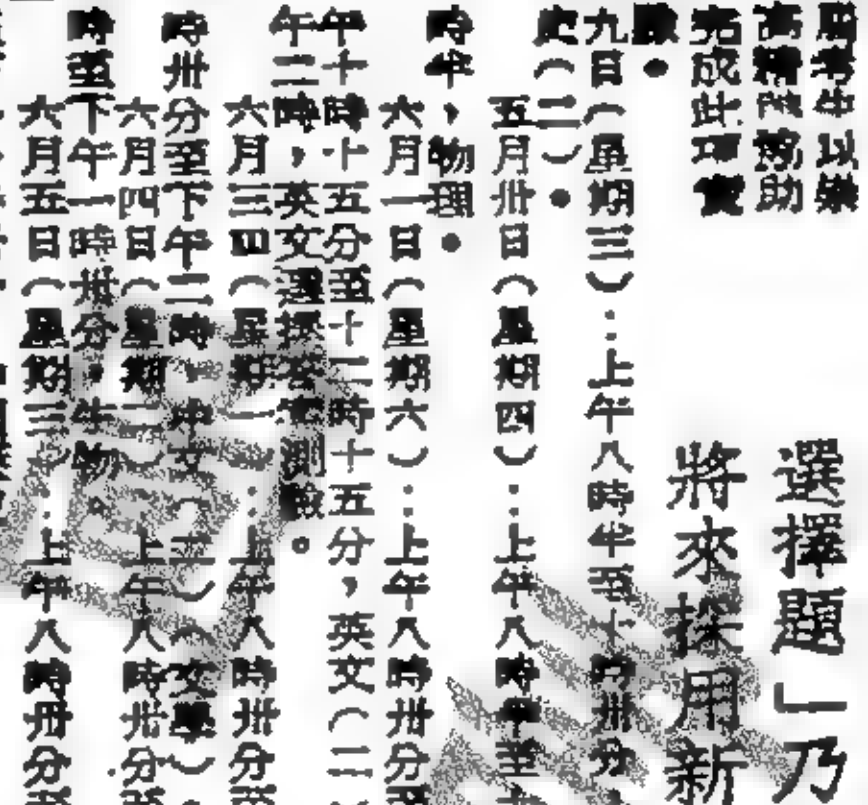 助
完成此項實
選擇題」乃
將來採用新
九日(星期三):上午八時半至十時卅分
史(二)。
五月卅日(星期四):上午八時半至
時半,物理。
六月一日(星期六):上午八時卅分至
午十時十五分至十二時十五分,英文(二)
午二時,英文選擇答案測驗。
六月三日(星期一):上午八時卅分至
時卅分至下午二時,中文(三)(文學)。
六月四日(星期二):上午八時卅分至
時至下午一時卅分,生物。
六月五日(星期三):上午八時卅分至